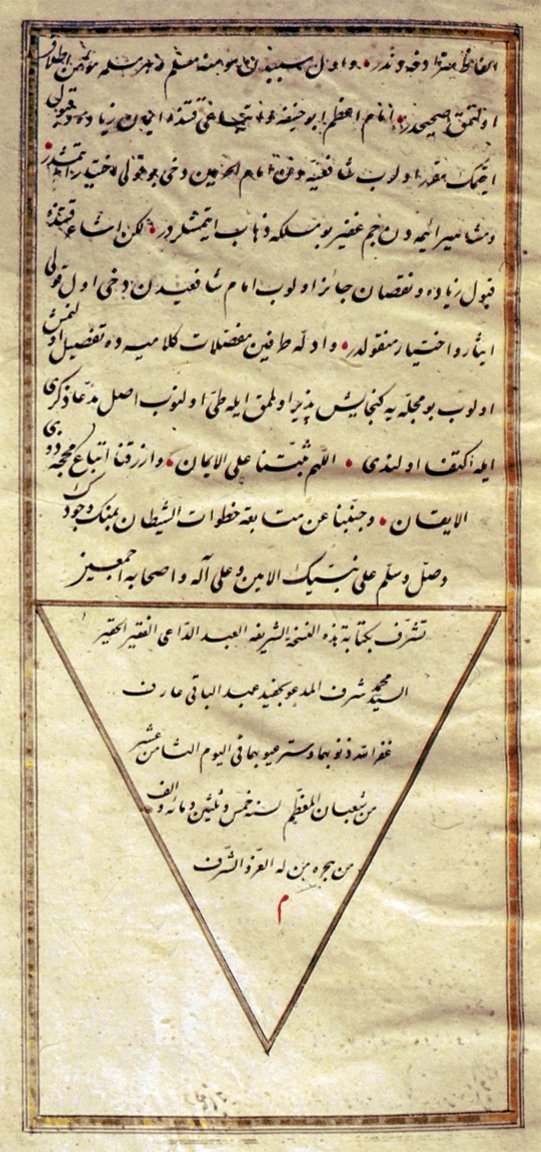 الفاظ مترادفه دندر واول سببدن هر مؤمنه مسلم وهر مسلمه مؤمن اطلاق
اولنمق صحيحدر امام اعظم ابو حنيفه قتنده ايمان زياده قبول
ايتمك اولوب شافعيه وامام الحرمين دخى بو قولى اختيار ايتمشدر
ومشاهير ائمه دن جم غفير بو مسلكه ذهاب ايتمشلردر لكن اشاعره قتنده
قبول زياده ونقصان جائز اولوب امام شافعيدن دخى اول قولى
ايثار واختيار منقولدر وادله طرفين مفصلات كلاميه ده تفصيل اولنمش
اولوب بو مجله يه كنجايش پذير اولمق ايله طى اولنوب اصل مدعا ذكرى
ايله اكتفا اولندى اللهم ثبتنا على الايمان وارزقنا اتباع محجة ذوى
الايقان وجنبنا عن متابعة خطوات الشيطان بمنك وجودك
وصل وسلم على نبيك الامين وعلى آله واصحابه اجمعين
تشرف بكتابة هذه النسخة الشريفه العبد الداعى الفقير الحقير
السيد محمد شرف المدعو بحفيد عبد الباقى عارف
غفر الله ذنوبهما وستر عيوبهما فى اليوم الثامن عشر
من شعبان المعظم لسنة خمس وثلثين ومائه والف
من هجرة من له العز والشرف
م